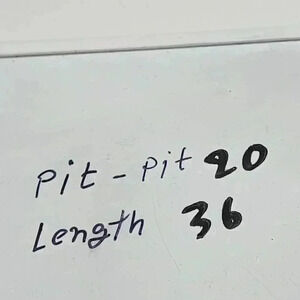 Pit - Pit 20
Length 36